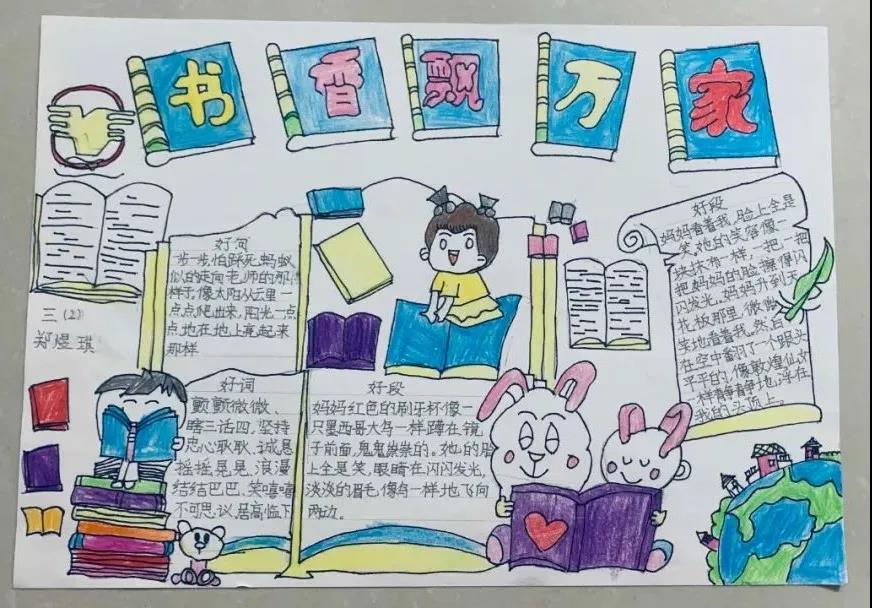 书香飘万家
三(2)
郑煜琪
好句
一步一步,怕踩死蚂蚁
似的走向老师的那
样子,像太阳从云里一
点点爬出来,阳光一点
点地在地上亮起来
那样
好词
颤颤微微、
瞎三话四、坚持
忠心耿耿、诚恳
摇摇晃晃、浪漫
结结巴巴、笑嘻嘻
不可思议、居高临下
好段
妈妈红色的刷牙杯像一
只墨西哥大鸟一样,蹲在镜
子前面,鬼鬼祟祟的。她的脸
上全是笑,眼睛在闪闪发光,
淡淡的眉毛像鸟一样地飞向
两边。
好段
妈妈看着我,脸上全是
笑。她的笑容像一
块抹布一样,一把一把
把妈妈的脸擦得闪
闪发光。妈妈升到天
花板那里,微微
笑地看着我。然后
在空中翻了一个跟头
平平的,像敦煌仙女
一样静静地,浮在
我的头顶上。